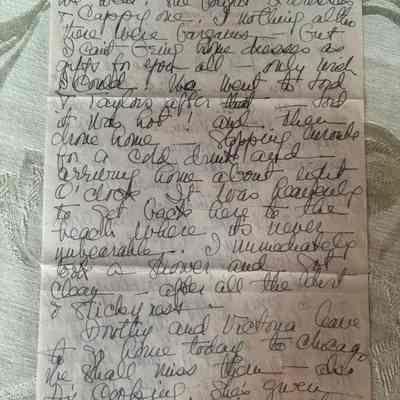 we went. She bought 2 dresses
& Cappy one. I nothing altho
there were bargains — but
I can't bring home dresses as
gifts for you all — only wish
I could! We went to Lord
& Taylors after that — God
it was hot! and then
drove home — stopping enroute
for a cold drink and
arriving home about eight
O'clock. It was heavenly
to get back here to the
beach where it's never
unbearable. I immediately
took a shower and got
clean — after all the dirt
& stickyness.
Dorothy and Victoria leave
to go home today to Chicago
we shall miss them — also
D's cooking. She's given